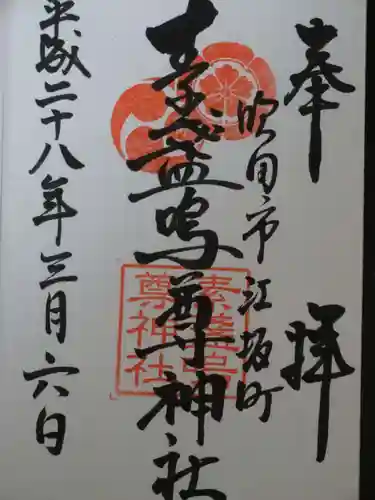 奉拝
吹田市江坂町
素盞嗚尊神社
素盞嗚
尊神社
平成二十八年三月六日